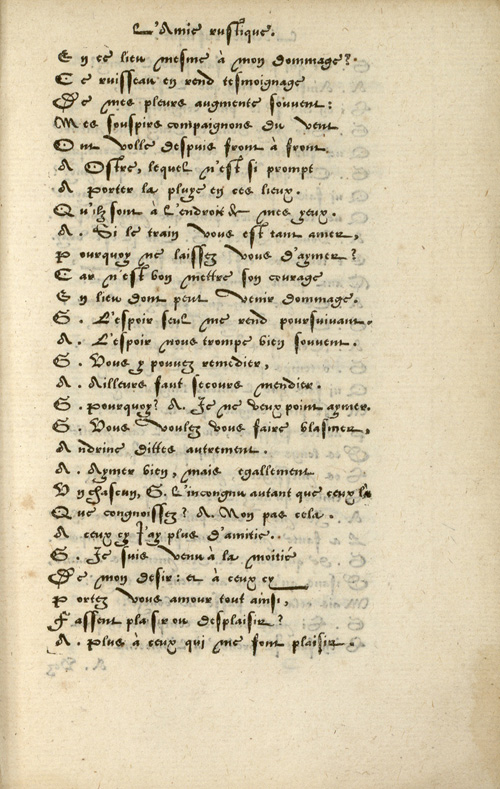 L'Amie rustique.
En ce lieu mesme à mon dommage?
Ce ruisseau en rend tesmoignage
De mes pleurs augmenté souvent:
Mes souspirs compaignons du vent
Ont vollé despuis front à front
A Ostre, lequel n'est si prompt
A porter la pluye en ces lieux.
Qu'ilz sont à l'endroit de mes yeux.
A. Si le train vous est tant amer,
Pourquoy ne laissez vous d'aymer?
Car n'est bon mettre son courage
En lieu dont peut venir dommage.
G. L'espoir seul me rend poursuivant.
A. L'espoir nous trompe bien souvent.
G. Vous y pouvez remedier,
A. Ailleurs faut secours mendier.
G. Pourquoy? A. Je ne veux point aymer.
G. Vous voulez vous faire blasmer,
Andrine dittes autrement.
A. Aymer bien, mais egallement
Un chascun, G. L'incongnu autant que ceux là
Que congnoissez? A. Non pas cela.
A ceux cy j'ay plus d'amitié.
G. Je suis venu à la moitié
De mon desir: et à ceux cy
Portez vous amour tout ainsi,
Fassent plaisir ou desplaisir?
A. Plus à ceux qui me font plaisir.